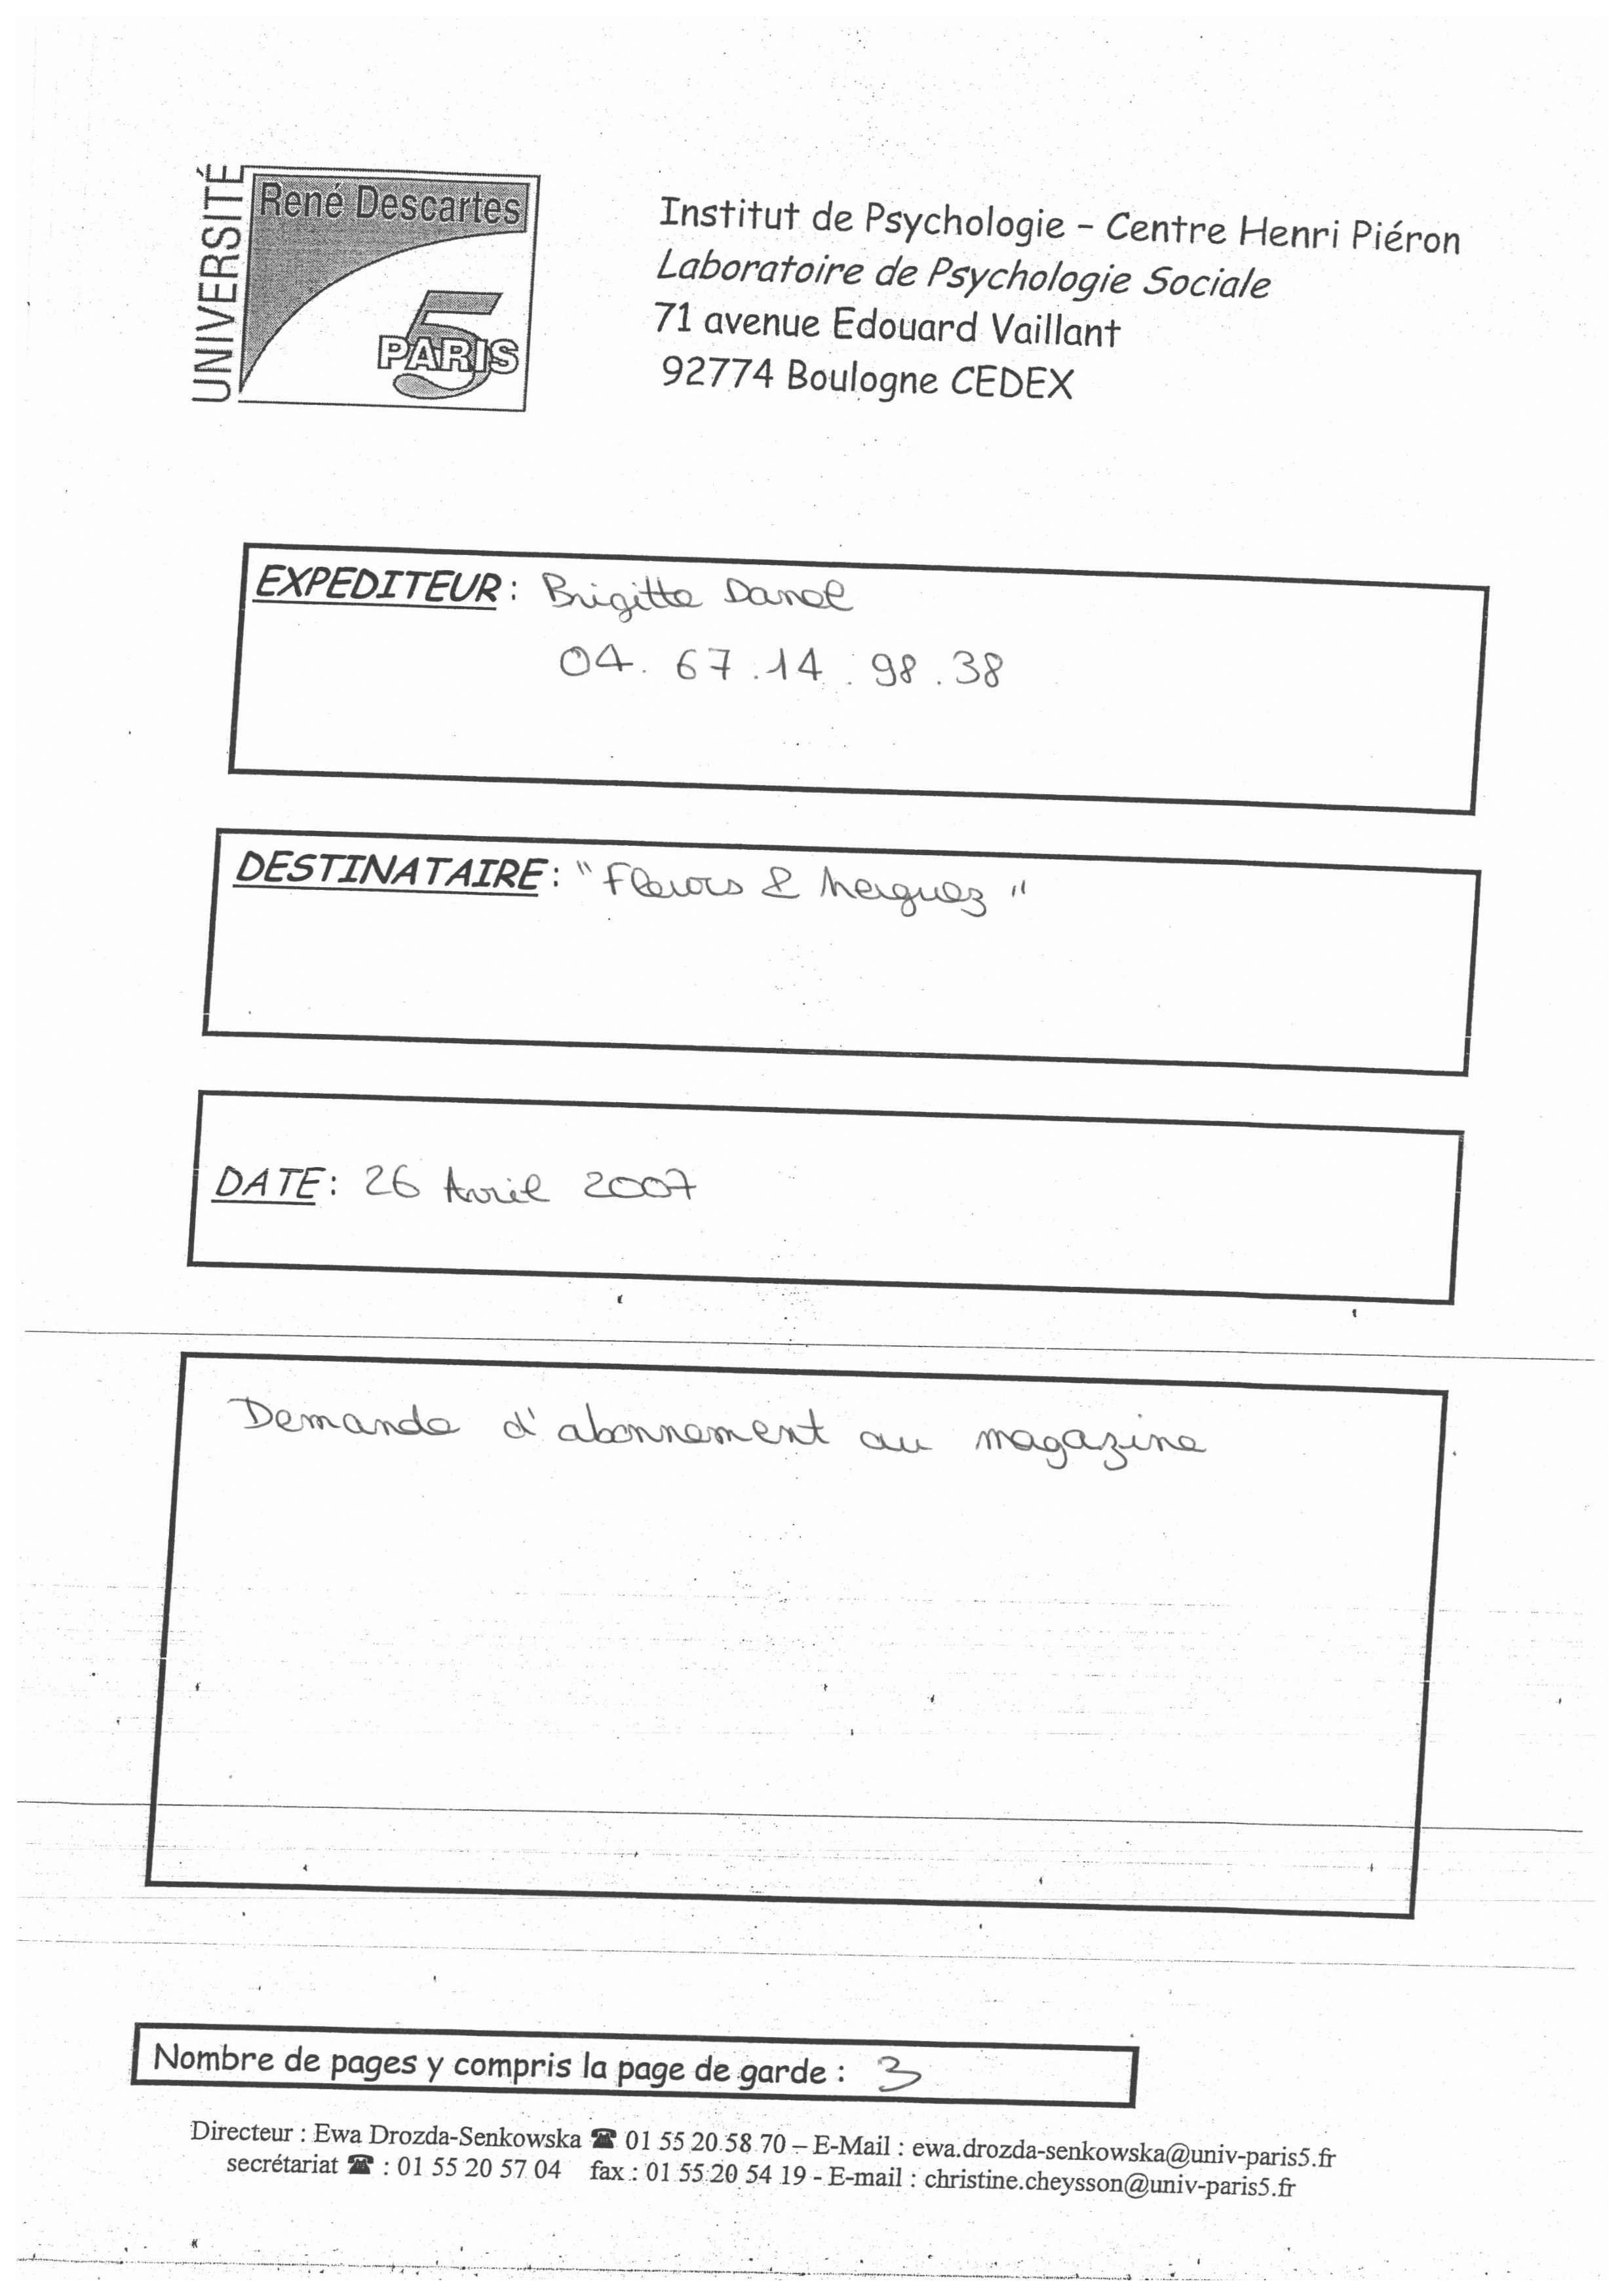 UNIVERSITÉ
René Descartes
PARIS 5
Institut de Psychologie – Centre Henri Piéron
Laboratoire de Psychologie Sociale
71 avenue Edouard Vaillant
92774 Boulogne CEDEX
EXPEDITEUR : Brigitte Danel
04. 67.14.98.38
DESTINATAIRE : "Fleurs & Merguez"
DATE : 26 Avril 2007
Demande d'abonnement au magazine
Nombre de pages y compris la page de garde : 3
Directeur : Ewa Drozda-Senkowska ☎ 01 55 20 58 70 – E-Mail : ewa.drozda-senkowska@univ-paris5.fr
secrétariat ☎ : 01 55 20 57 04 fax : 01 55 20 54 19 - E-mail : christine.cheysson@univ-paris5.fr